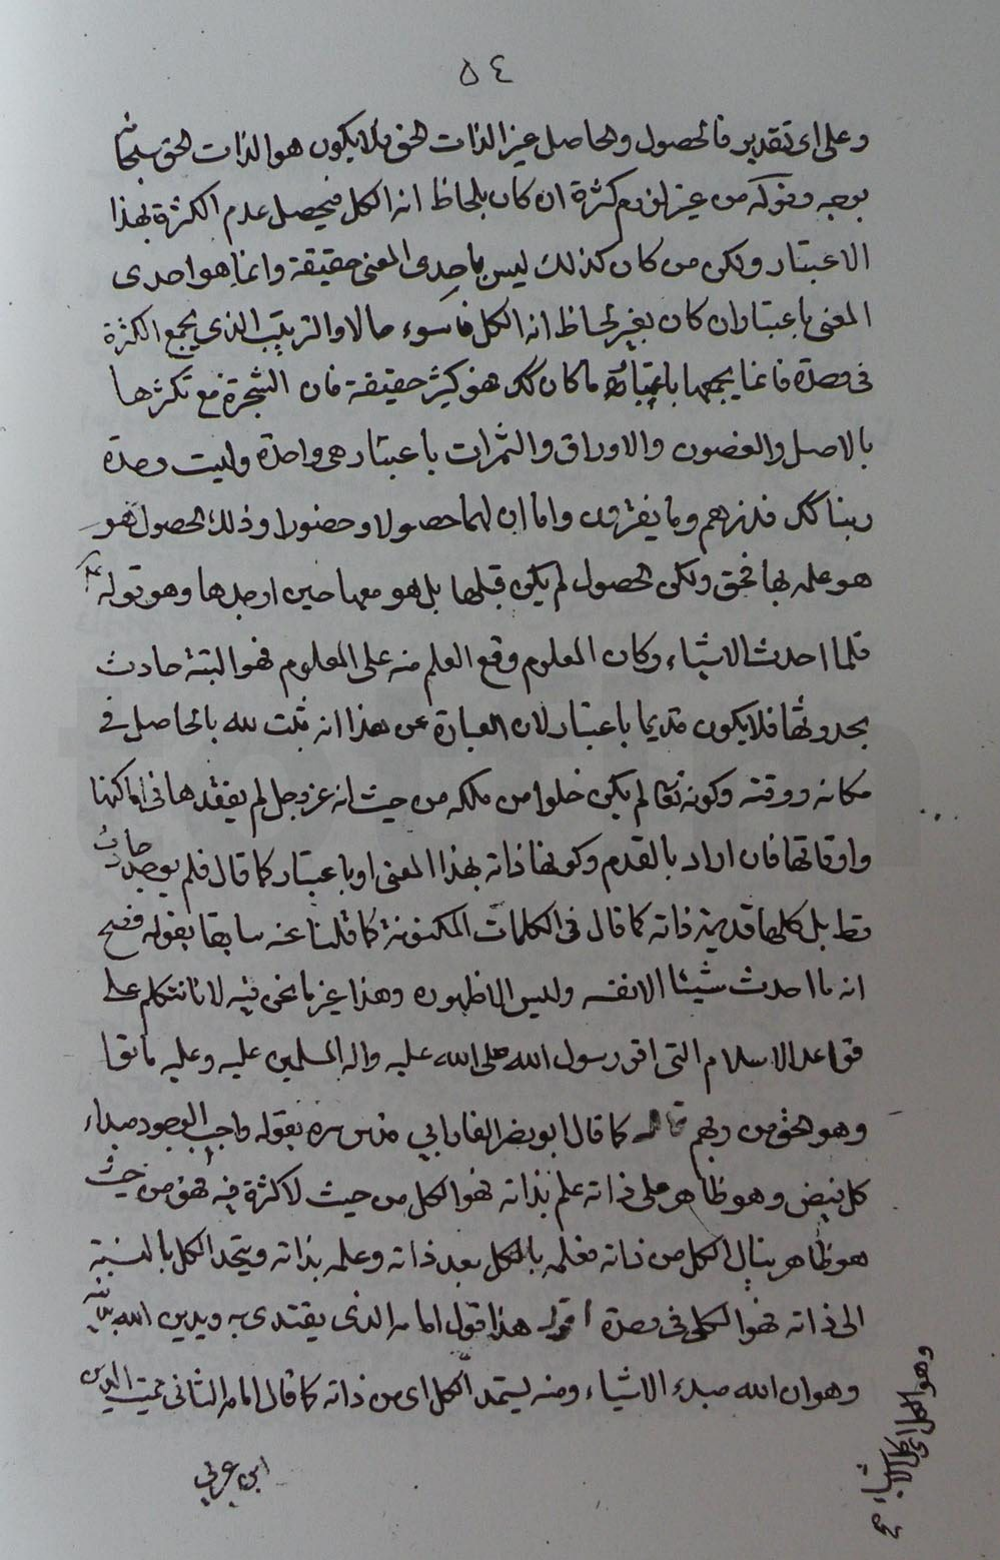 ٥٤
وعلى اى تقدير فالحصول والحاصل غير الذات الحق فلا يكون هو الذات الحق سبحانه
بوجه وقوله من غير لزوم كثرة ان كان بلحاظ انه الكل فيحصل عدم الكثرة بهذا
الاعتبار ولكن من كان كذلك ليس باحدى المعنى حقيقة وانما هو احدى
المعنى باعتبار وان كان بغير لحاظ انه الكل فاسوء حالا والترتيب الذى يجمع الكثرة
فى وحدة فانما يجمعها باعتبار وما كان كك فهو كثير حقيقة فان الشجرة مع تكثرها
بالاصل والغصون والاوراق والثمرات باعتبار هى واحدة وليست وحدة
ربنا كك فذرهم وما يفترون واما ان لهما حصولا وحضورا وذلك الحصول هو
هو علمه بها فحق ولكن الحصول لم يكن قبلها بل هو معها حين اوجدها وهو قوله ع
فلما احدث الاشياء وكان المعلوم وقع العلم منه على المعلوم فهو البتة حادث
بحدوثها فلا يكون قديما باعتبار لان العبارة عن هذا انه ثبت لله بالحاصل فى
مكانه ووقته وكونه تعا لم يكن خلوا من ملكه من حيث انه عز وجل لم يفقدها فى اماكنها
واوقاتها فان اراد بالقدم وكونها ذاته بهذا المعنى او باعتبار كما قال فلم يوجد حادث
قط بل كلها قديمة فانه كما قال فى الكلمات المكنونة كما نقلنا عنه سابقا بقوله فصح
انه ما احدث شيئا الا نفسه وليس الا ظهوره وهذا غير ما نحن فيه لانا نتكلم على
قواعد الاسلام التى اقر رسول الله صلى الله عليه واله المسلمين عليه وعليه ما بقا
وهو الحق من ربهم قال كما قال ابو نصر الفارابي قدس سره بقوله واجب الوجود مبدء
كل فيض وهو ظاهر على ذاته علم بذاته فهو الكل من حيث لا كثرة فيه فهو من حيث
هو ظاهر ينال الكل من ذاته فعلمه بالكل بعد ذاته وعلمه بذاته ويتحد الكل بالنسبة
الى ذاته فهو الكل فى وحدة اقول هذا قول امامه الذى يقتدى به ويدين الله
وهو ان الله مبدء الاشياء ومنه يستمد الكل اى من ذاته كما قال امامه الثانى مميت الدين
ابن عربي